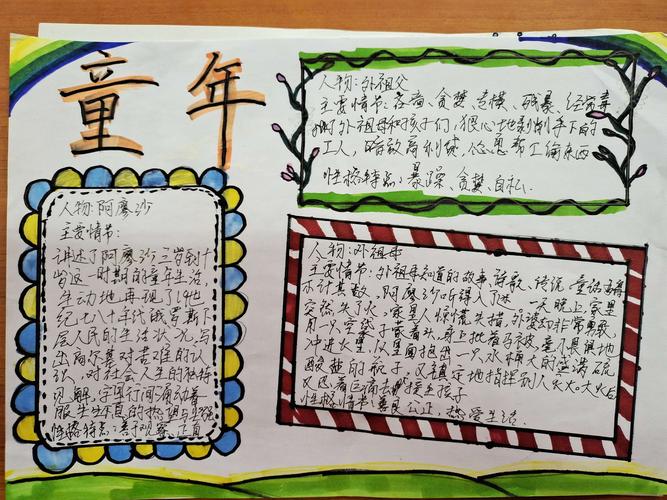 童年
人物:阿廖沙
主要情节:
讲述了阿廖沙三岁到十
岁这一时期的童年生活,
生动地再现了19世
纪七八十年代俄罗斯下
层人民的生活状况,写
出高尔基对苦难的认
识,对社会人生的独特
见解,字里行间涌动着
生生不息的热望与坚强
性格特点:善于观察、正直
人物:外祖父
主要情节:吝啬、贪婪、专横、残暴、经常毒
打外祖母和孩子们,狠心地剥削手下的
工人,暗放高利贷,怂恿帮工偷东西
性格特点:暴躁、贪婪、自私.
人物:外祖母
主要情节:外祖母知道的故事、诗歌、传说、童话
不计其数,阿廖沙听得入了迷。一天晚上家里
突然失了火,家里人惊慌失措,外婆却非常勇敢
用一只空袋子套着头,身上披着马被,毫不畏惧地
冲进火里,从里面抱出一只水桶大的盛满硫
酸盐的瓶子,又镇定地指挥别人灭火。大火后
又忍着巨痛去接生孩子
性格特点:善良公正,热爱生活.